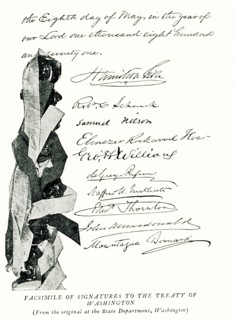 the Eighth day of May, in the year of
our Lord one thousand eight hundred
and seventy one.
Hamilton Fish
Robt C Schenck
Samuel Nelson
Ebenezer Rockwood Hoar
Geo. H. Williams
de Grey & Ripon
Stafford H. Northcote
Edwd Thornton
John A Macdonald
Mountague Bernard
FACSIMILE OF SIGNATURES TO THE TREATY OF
WASHINGTON
(From the original at the State Department, Washington)